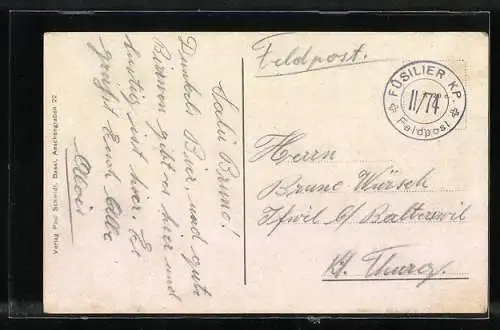 Feldpost.
FÜSILIER KP.
II/74
Feldpost
Salü Bruno!
Dunkels Bier, und gute
Birnen gibt es hier und
lustig ist hier. Es
grüsst Euch Alle
Alois
Herrn
Bruno Würsch
Ifwil b/ Balterswil
Kt. Thurg.
Verlag Paul Schmidt, Basel, Aeschengraben 22